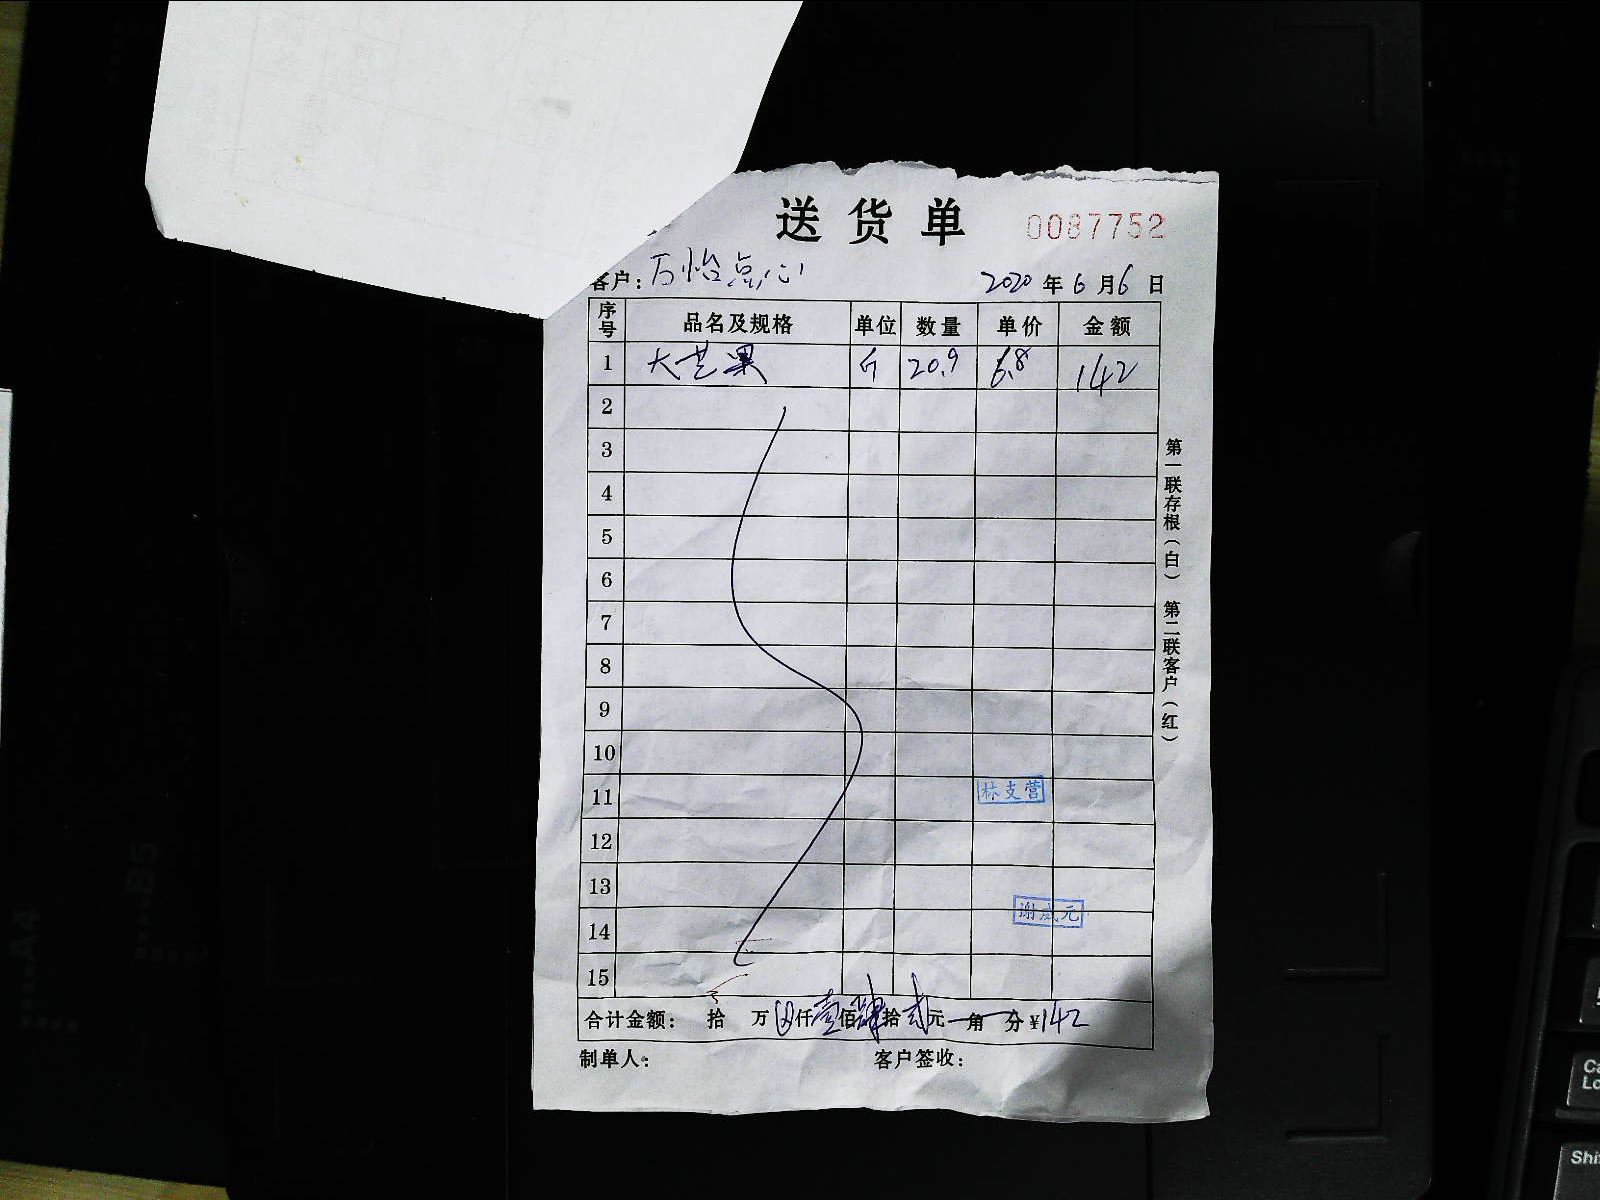 送货单 0087752
客户：万怡点心 2020年6月6日
序号 品名及规格 单位 数量 单价 金额
1 大芒果 斤 20.9 6.8 142
2
3
4
5
6
7
8
9
10
11
林支营
12
13
14
谢成元
15
合计金额： 拾 万 仟壹佰肆拾贰元 角 分¥142
制单人： 客户签收：
第一联存根（白） 第二联客户（红）
A4
B5
Shi